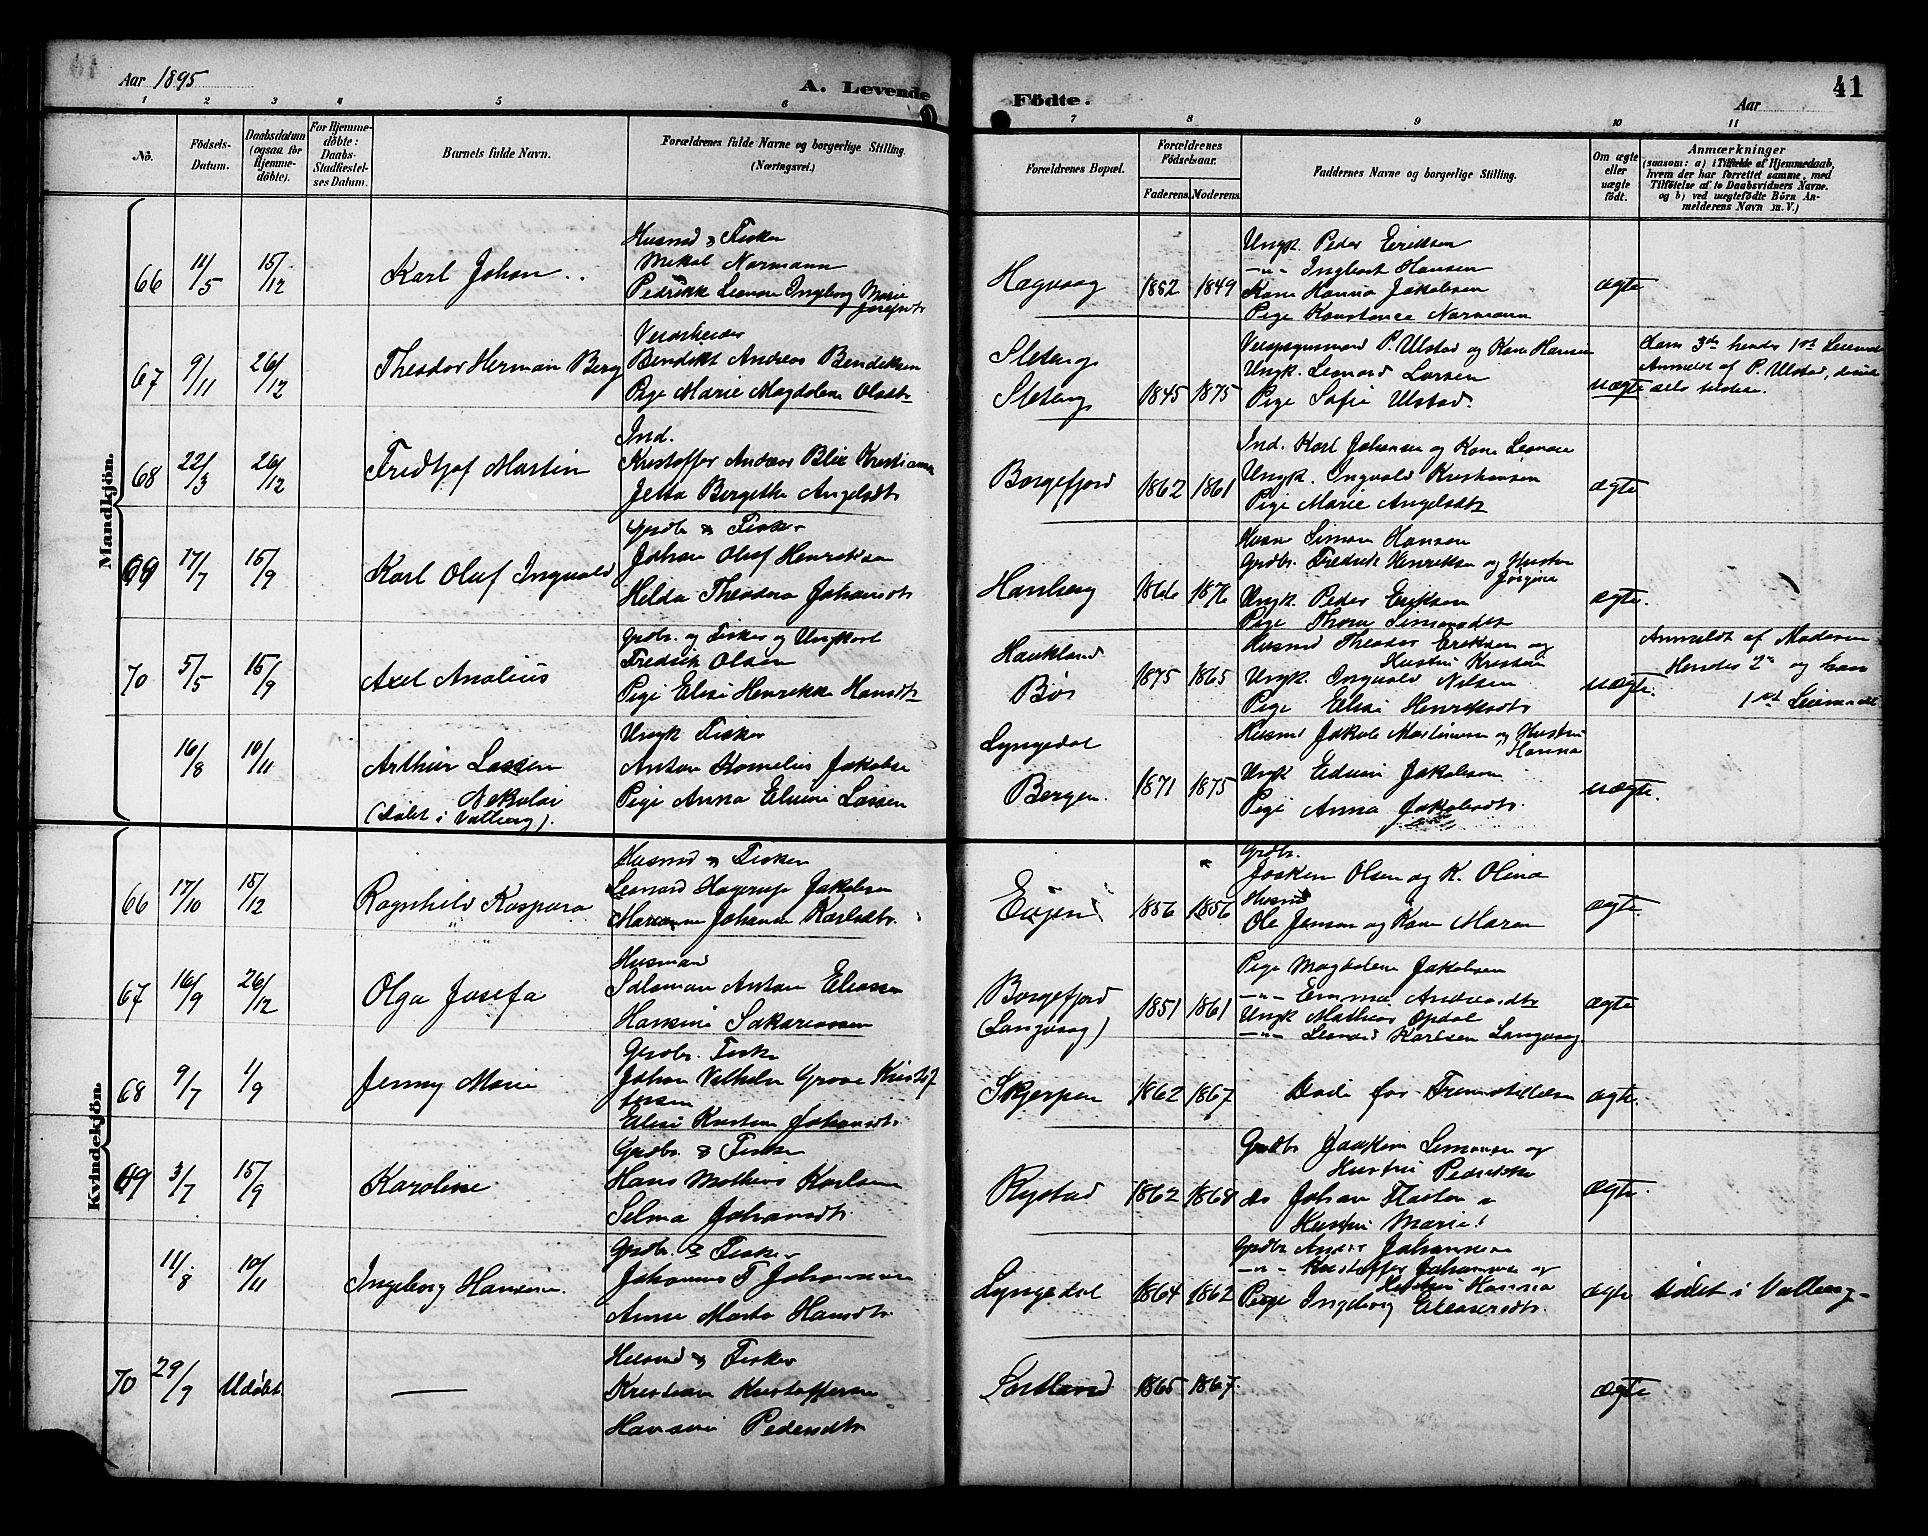 Aar 1895
A. Levende
Födte.
Aar
41
1 2 3 4 5 6 7 8 9 10 11
No.
Födsels-Datum.
Daabsdatum (ogsaa for Hjemmedöbte).
For Hjemmedöbte: Daabs-Stadfæstelses Datum.
Barnets fulde Navn.
Forældrenes fulde Navne og borgerlige Stilling. (Næringsvei.)
Forældrenes Bopæl.
Forældrenes Födselsaar.
Faderens. Moderens.
Faddernes Navne og borgerlige Stilling.
Om ægte eller uægte födt.
Anmærkninger
(saasom: a) i Tilfælde af Hjemmedaab, hvem der har forrettet samme, med Tilföielse af to Daabsvidners Navne. og b) ved uægtefödte Börn Anmelderens Navn m. V.)
Mandkjön.
66 11/5 15/12 Karl Johan
Husmd & Fisker
Mekal Normann
Pedrikke Leonore Ingeborg Marie Josefsdtr
Hagvaag 1852 1849
Ungk. Peder Eriksen
-"- Ingbert Hansen
Kone Hanna Jakobsen
Pige Konstance Normann
ægte
67 9/11 26/12 Theodor Herman Berg
Bendikt Andreas Bendiksen
Pige Marie Magdalene Olsdtr
Sleteng
Sleteng 1845 1875
P. Ulstad og Kone Hansine
Ungk. Leonard Larsen
Pige Sofie Ulstad.
uægte
Hans 3die hendes 1st Leiermaal
Anmeldt af P. Ulstad,
68 22/3 26/12 Fredtjof Martin
Ind.
Kristoffer Andreas Blix Kristiansen
Jetta Bergitte Angelsdtr
Borgefjord 1862 1861
Ind. Karl Johansen og Kone Leonore
Ungk. Ingvald Kristiansen
Pige Marie Angelsdtr
ægte
69 17/7 15/9 Karl Oluf Ingvald
Grdbr & Fisker
Johan Oluf Henriksen
Helda Theodora Johansdtr
Hansberg 1866 1876
Simon Hansen
Grdbr. Fredrik Henriksen og Hustru Jörgine
Ungk. Peder Eriksen
Pige Thora Simonsdtr
ægte.
70 5/5 15/9 Axel Analius
Grdbr. og Fisker og Ungkarl
Fredrik Olsen
Pige Elise Henrikke Hansdtr
Haukland
Bös 1875 1865
Husmd Theodor Eriksen og Hustru Kristine
Ungk. Ingvald Nilsen
Pige Elise Henriksdtr
uægte.
Anmeldt af Moderen
Hendes 2et og hans
1st Leiermaal
16/8 10/11 Arthur Lassen
Nekolai
(Döbt i Valberg).
Ungk Fisker
Anton Kornelius Jakobsen
Pige Anna Elvine Lassen
Lyngedal
Bergen. 1871 1875
Husmd Jakob Martinsen og Hustru Hanna
Ungk Edvin Jakobsen
Pige Anna Jakobsdtr.
uægte.
Kvindekjön.
66 17/10 15/12 Ragnhild Kaspara
Husmd & Fisker
Leonard Hagerup Jakobsen
Johanna Karlsdtr.
1856 1856
Grdbr.
Joakim Olsen og K. Olina
Husmd
Ole Jensen og Kone Maren
ægte.
67 16/9 26/12 Olga Josefa
Husmand
Salomon Anton Eliassen
Hansine Sakariassen
Borgefjord
(Langvaag) 1851 1861
Pige Magdalene Jakobsen
-"- Emma Andreasdtr
Ungk Mathias Opdal
-"- Leonard Karlsen Langvaag
ægte
68 9/7 1/9 Jenny Marie
Grdbr. Fisker
Johan Vilhelm Grove Kristoffersen
Elise Kristine Johansdtr
Skjerpen 1862 1867
Död för Fremstillelsen
ægte.
69 3/7 15/9 Karoline
Grdbr. & Fisker
Hans Mathias Karlsen
Selma Johansdtr
Rystad 1862 1868
Grdbr Joakim Simonsen og Hustru Pedrikke
do Johan Hustru Marie
ægte.
11/8 10/11 Ingeborg Hansine.
Grdbr. & Fisker
Johannes T Johannesen
Anne Marta Hansdtr
Lyngedal 1864 1862
Grdbr Johannesen
-"- Kristoffer Johannesen og Hustru Hanna
Pige Ingeborg Eleasersdtr.
ægte Döbt i Valberg-
70 29/9 Udöbt. —
Husmd & Fisker
Kristian Kristoffersen
Hansine Pedersdtr
Sortland 1865 1867.
ægte